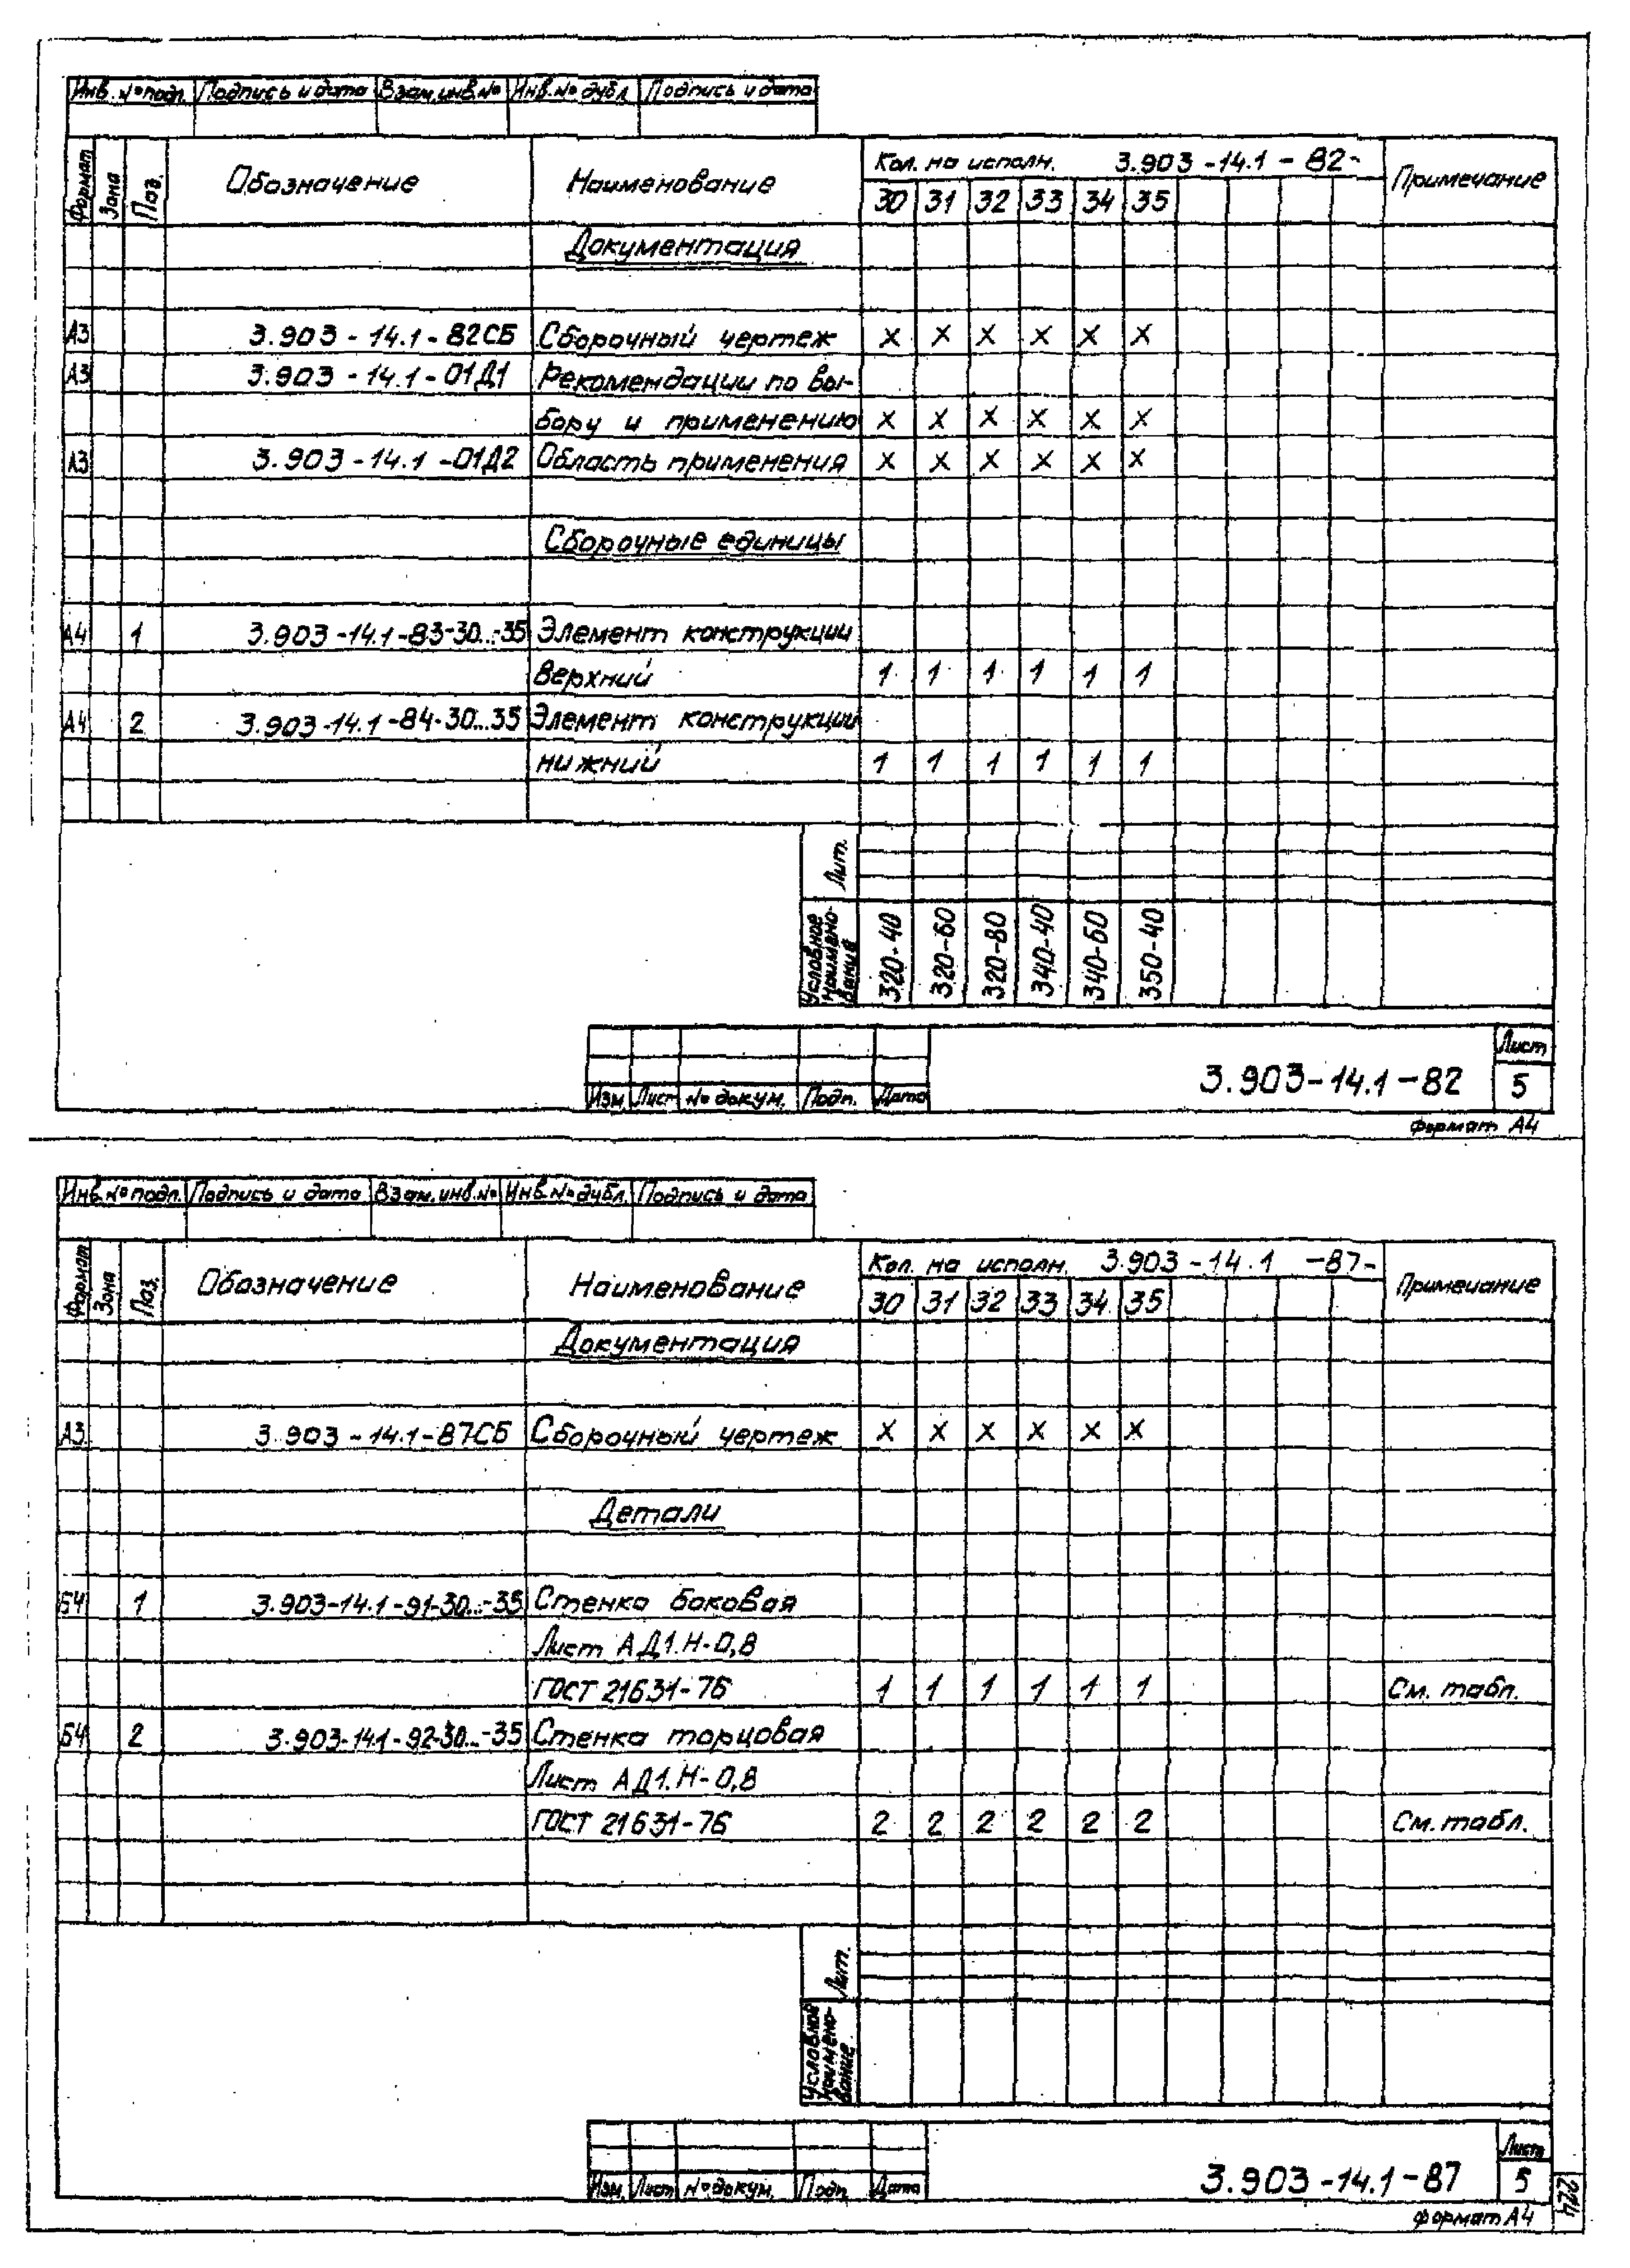 Инв. № подл. Подпись и дата Взам.инв.№ Инв.№ дубл. Подпись и дата
Формат Зона Поз. Обозначение Наименование Кол. на исполн. 3.903-14.1-82- Примечание
30 31 32 33 34 35
Документация
А3 3.903-14.1-82СБ Сборочный чертеж х х х х х х
А3 3.903-14.1-01Д1 Рекомендации по вы-
бору и применению х х х х х х
А3 3.903-14.1-01Д2 Область применения х х х х х х
Сборочные единицы
А4 1 3.903-14.1-83-30...-35 Элемент конструкции
верхний 1 1 1 1 1 1
А4 2 3.903-14.1-84-30...35 Элемент конструкции
нижний 1 1 1 1 1 1
Лит.
Условное наимено-вание 320-40 320-60 320-80 340-40 340-60 350-40
Изм Лист № докум. Подп. Дата 3.903-14.1-82 Лист 5
Формат А4
Инв.№ подл. Подпись и дата Взам.инв.№ Инв.№ дубл. Подпись и дата
Формат Зона Поз. Обозначение Наименование Кол. на исполн. 3.903-14.1-87- Примечание
30 31 32 33 34 35
Документация
А3 3.903-14.1-87СБ Сборочный чертеж х х х х х х
Детали
Б4 1 3.903-14.1-91-30...-35 Стенка боковая
Лист АД1.Н-0,8
ГОСТ 21631-76 1 1 1 1 1 1 См. табл.
Б4 2 3.903-14.1-92-30...-35 Стенка торцовая
Лист АД1.Н-0,8
ГОСТ 21631-76 2 2 2 2 2 2 См. табл.
Лит.
Условное наимено-вание
Изм. Лист № докум. Подп. Дата 3.903-14.1-87 Лист 5
формат А4
224